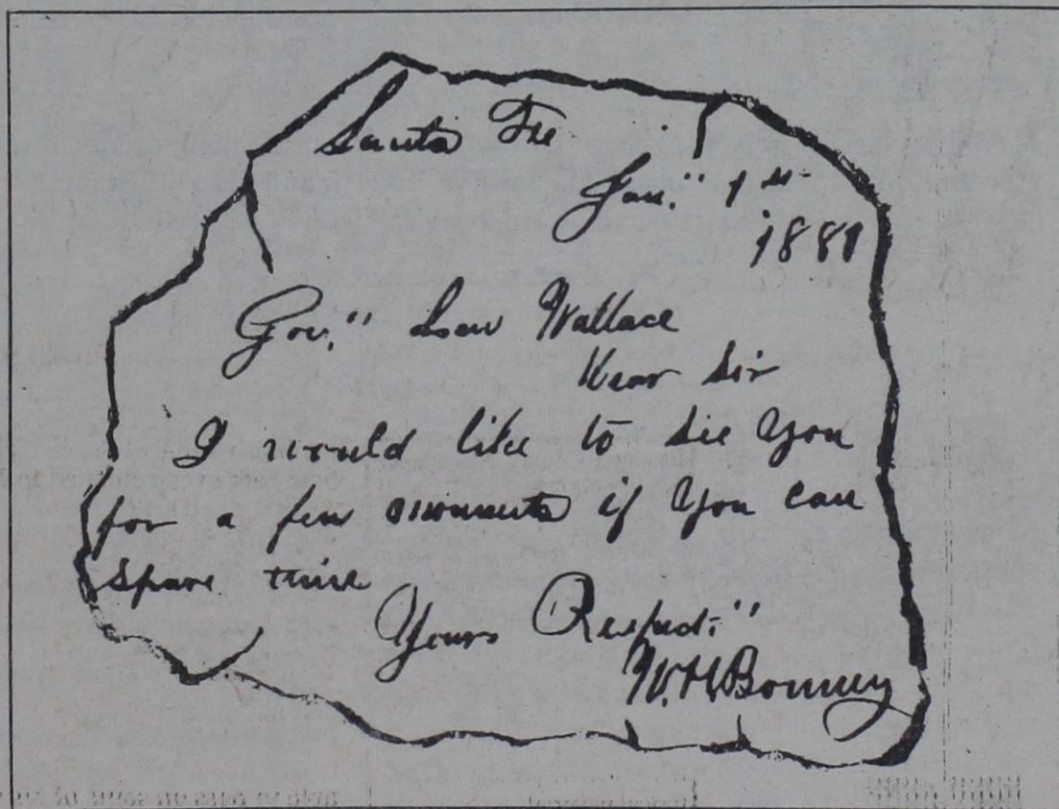 Santa Fe
Jan." 1st
1881
Gov." Lew Wallace
Dear Sir
I would like to see You
for a few moments if You can
Spare time
Yours Respect."
W.H. Bonney